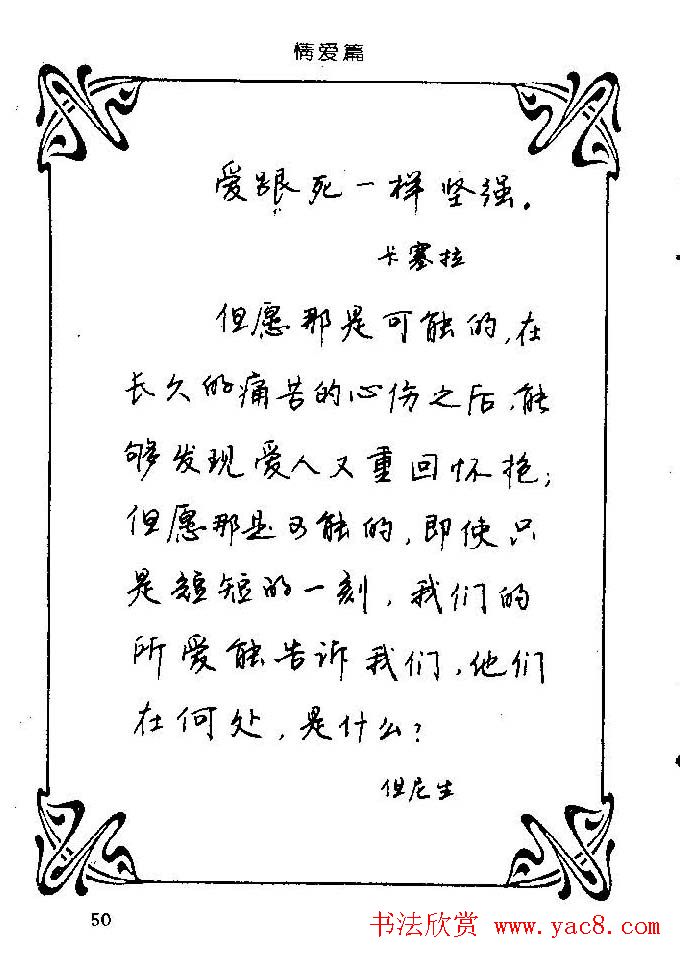 情爱篇
爱跟死一样坚强。
卡塞拉
但愿那是可能的，在
长久的痛苦的心伤之后，能
够发现爱人又重回怀抱；
但愿那是可能的，即使只
是短短的一刻，我们的
所爱能告诉我们，他们
在何处，是什么？
但尼生
50
书法欣赏 www.yac8.com